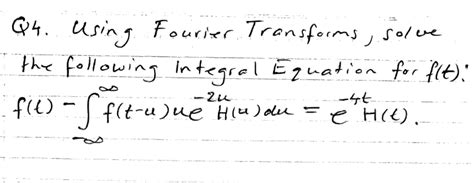 Q4. Using Fourier Transforms, solve
the following Integral Equation for f(t):
f(t) - ∫_{-∞}^{∞} f(t-u)ue^{-2u}H(u)du = e^{-4t}H(t).